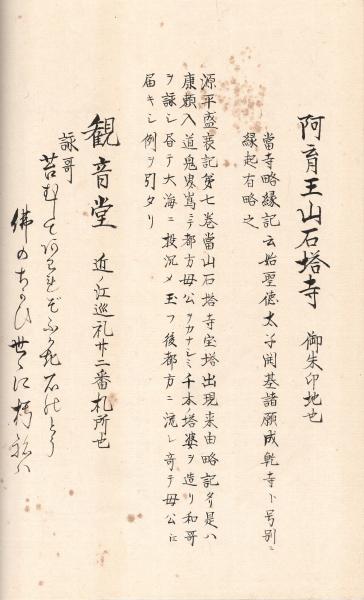 阿育王山石塔寺 御朱印地也
當寺略縁記云始聖徳太子開基諸願成乾寺ト号別ニ
縁起有略之
源平盛衰記第七巻當山石塔寺宝塔出現来由略記タリ是ハ
康頼入道鬼界嶌ニテ都方母公ヲカナシミ千本ノ塔婆ヲ造リ和哥
ヲ詠シ呑テ大海ニ投沉メ玉フ後都方ニ流レ寄テ母公ニ
届キシ例ヲ引タリ
観音堂 近ノ江巡礼廿二番札所也
詠哥
苔むして
石のとう
佛のちかひ 世々に朽ねハ